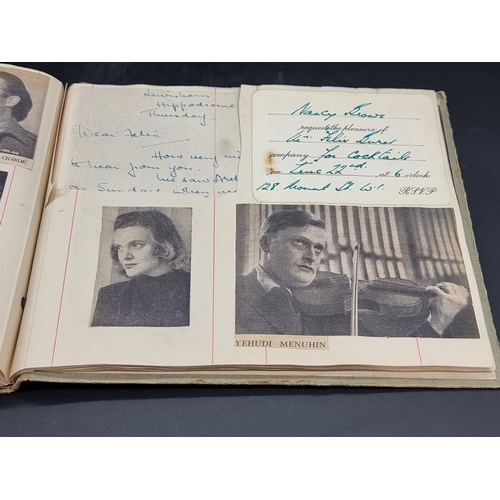 CHARLIE
Lewisham
Hippodrome
Thursday.
Dear Felix
How very ni
to hear from you.
on Sunday when we
Nancy
requests the pleasure of
Felix
company for Cocktails
on at 6 o'clock
28 Mount St W1.
R.S.V.P
YEHUDI MENUHIN